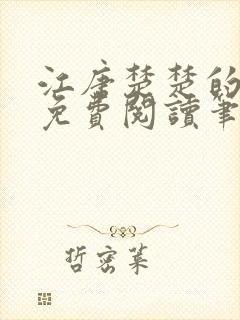 江唐楚楚的
免費閱讀筆
哲密葉